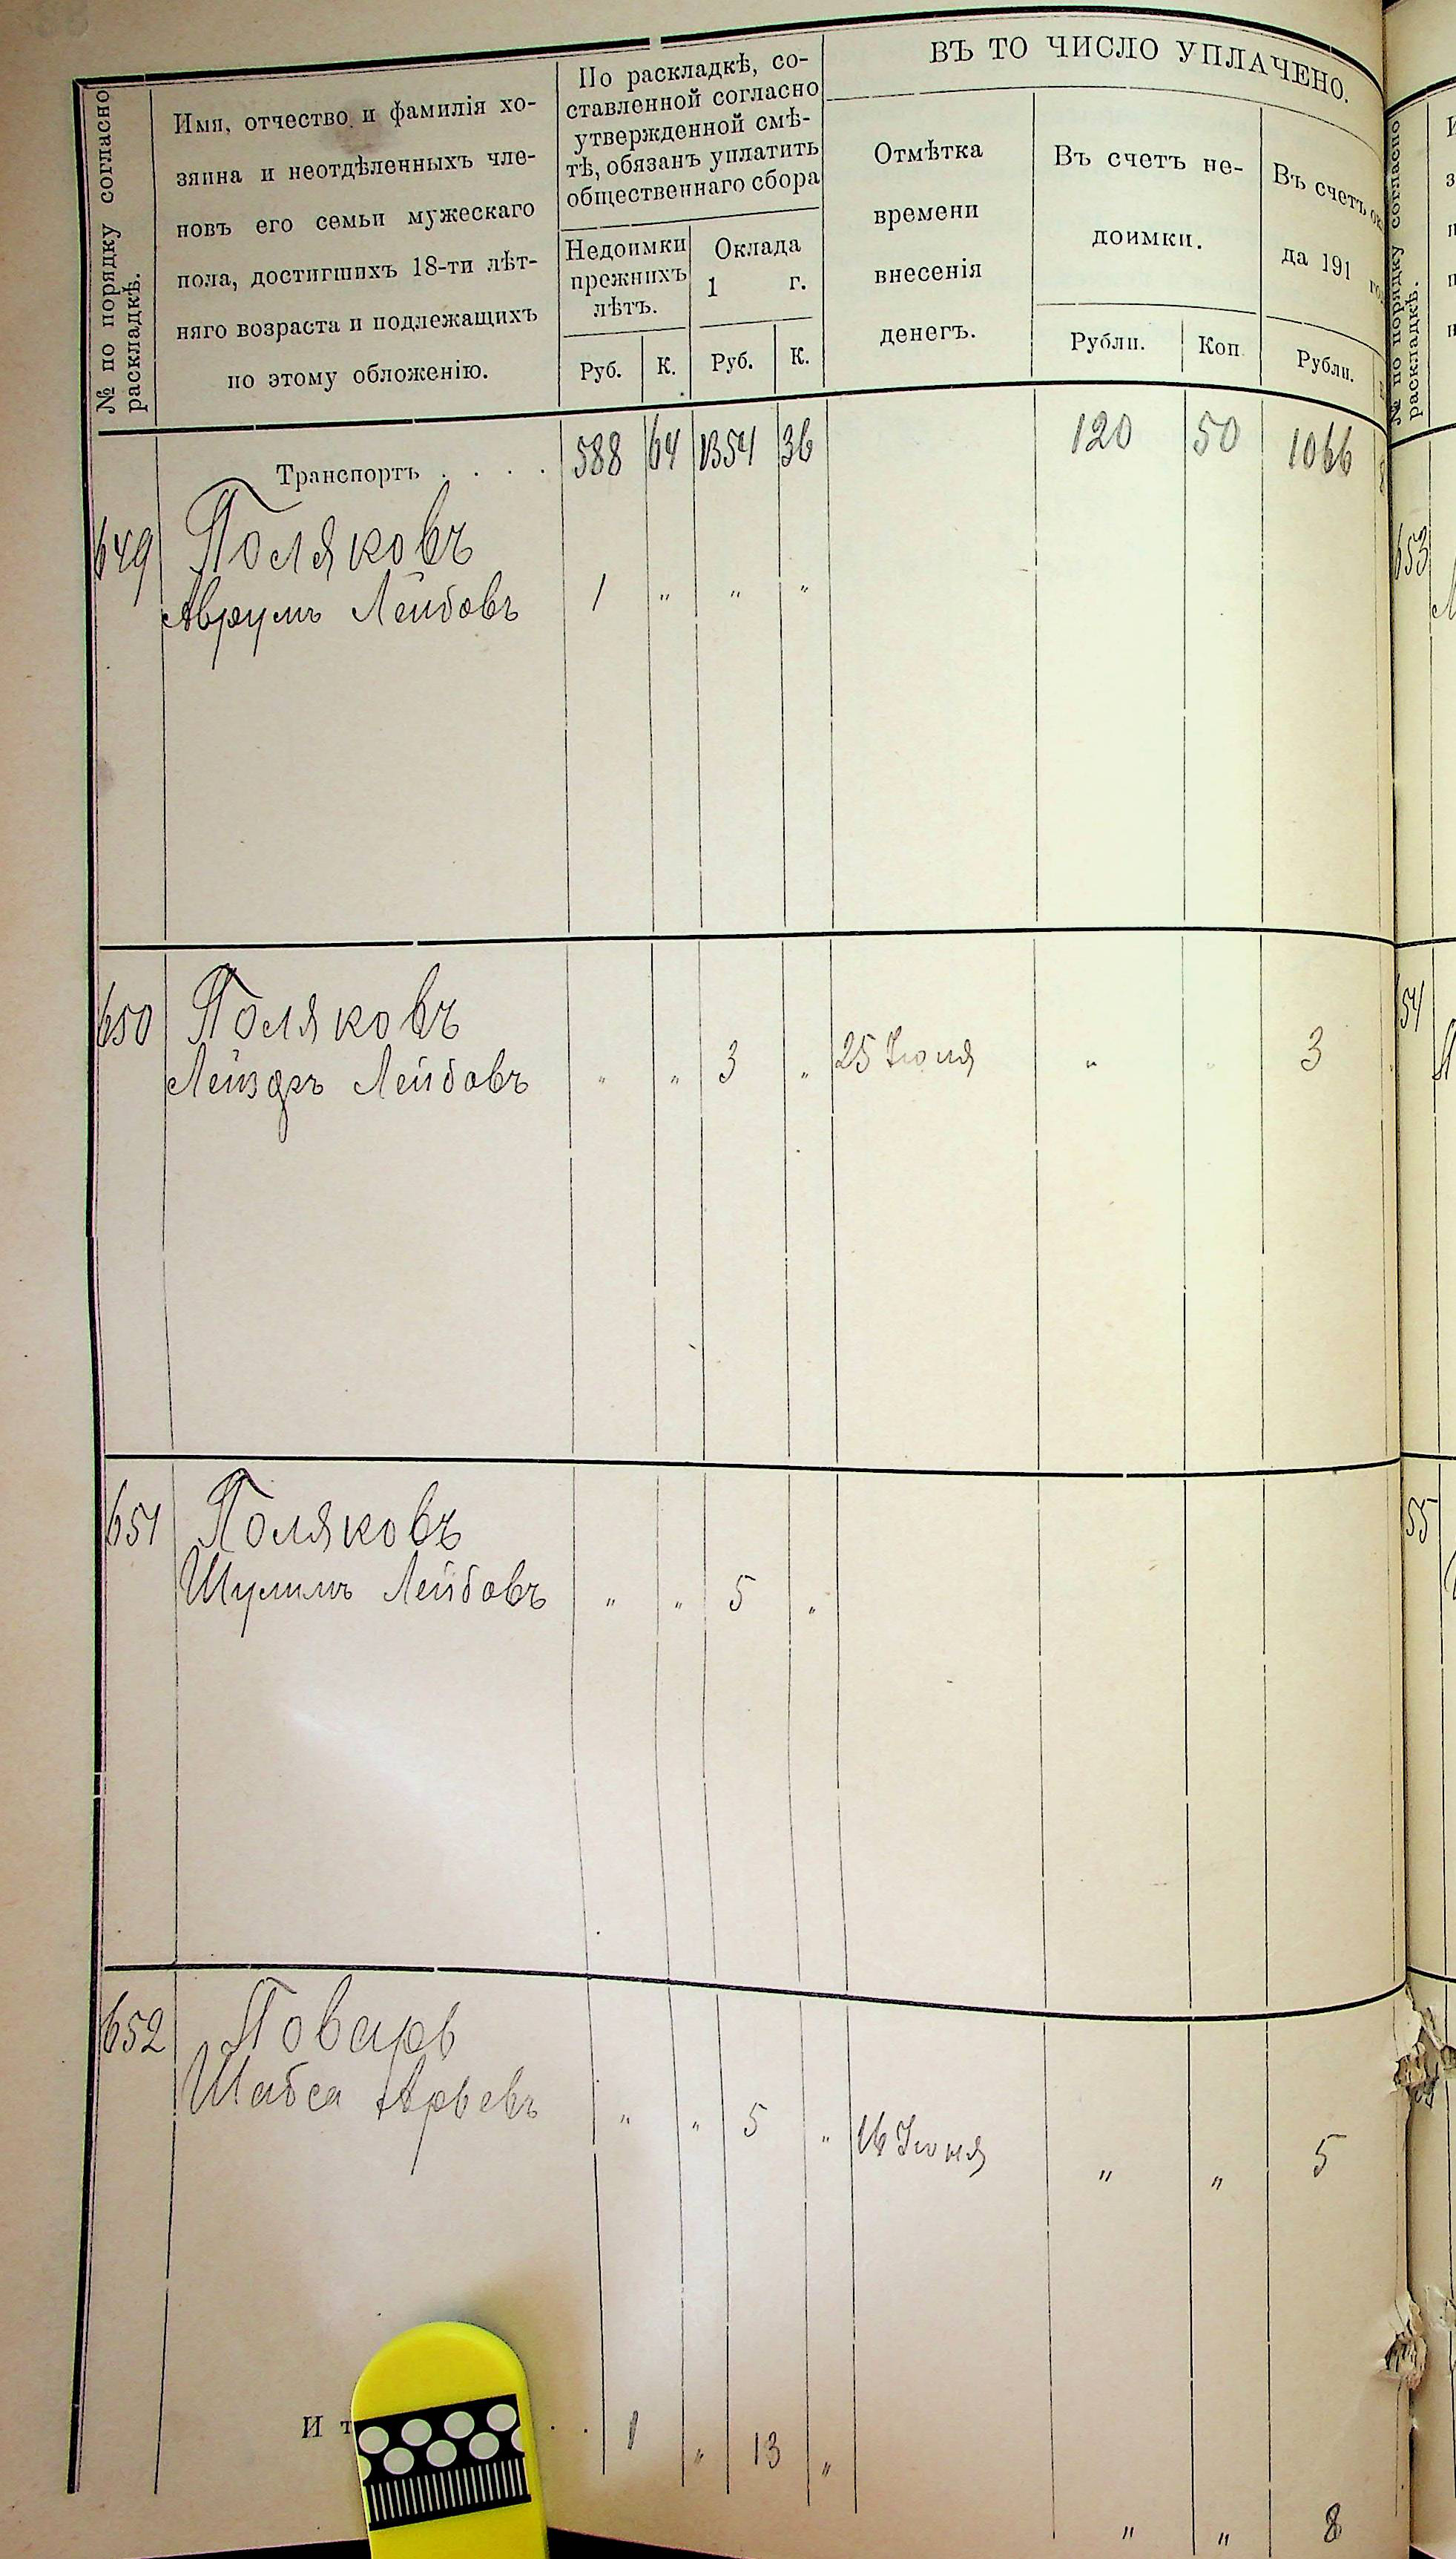 № по порядку согласно
раскладкѣ.
Имя, отчество и фамилія хо-
зяина и неотдѣленныхъ чле-
новъ его семьи мужескаго
пола, достигшихъ 18-ти лѣт-
няго возраста и подлежащихъ
по этому обложенію.
По раскладкѣ, со-
ставленной согласно
утвержденной смѣ-
тѣ, обязанъ уплатить
общественнаго сбора
Недоимки
прежнихъ
лѣтъ.
Оклада
1 г.
Руб. К. Руб. К.
ВЪ ТО ЧИСЛО УПЛАЧЕНО.
Отмѣтка
времени
внесенія
денегъ.
Въ счетъ не-
доимки.
Рубли. Коп
Въ счетъ
да 191
Рубли.
Транспортъ . . . . 588 64 1354 36 120 50 1066
649 Поляковъ
Аврумъ Лейбовъ 1 " " "
650 Поляковъ
Лейзеръ Лейбовъ " " 3 " 25 Іюля " " 3
651 Поляковъ
Шулимъ Лейбовъ " " 5 "
652 Поваръ
Шабса Арьевъ " " 5 " 16 Іюня " " 5
1 " 13 " " " 8
№ по порядку согласно
раскладкѣ.
653
54
55